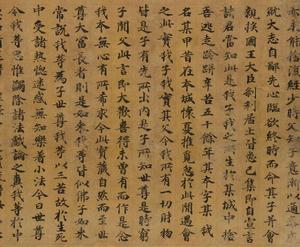 亦未能捨復經少時父知子意漸以通泰成
就大志自鄙先心臨欲終時而命其子并會
親族國王大臣剎利居士皆悉已集即自宣言
諸君當知此是我子我之所生於某城中捨
吾逃走跉跰辛苦五十餘年其本字某我
名某甲昔在本城懷憂推覓忽於此間遇會得
之此實我子我實其父今我所有一切財物
皆是子有先所出內是子所知世尊是時窮
子聞父此言即大歡喜得未曾有而作是念
我本無心有所希求今此寶藏自然而至世
尊大富長者則是如來我等皆似佛子如來
常說我等為子世尊我等以三苦故於生死
中受諸熱惱迷惑無知樂著小法今日世尊
令我等思惟蠲除諸法戲論之糞我等於中